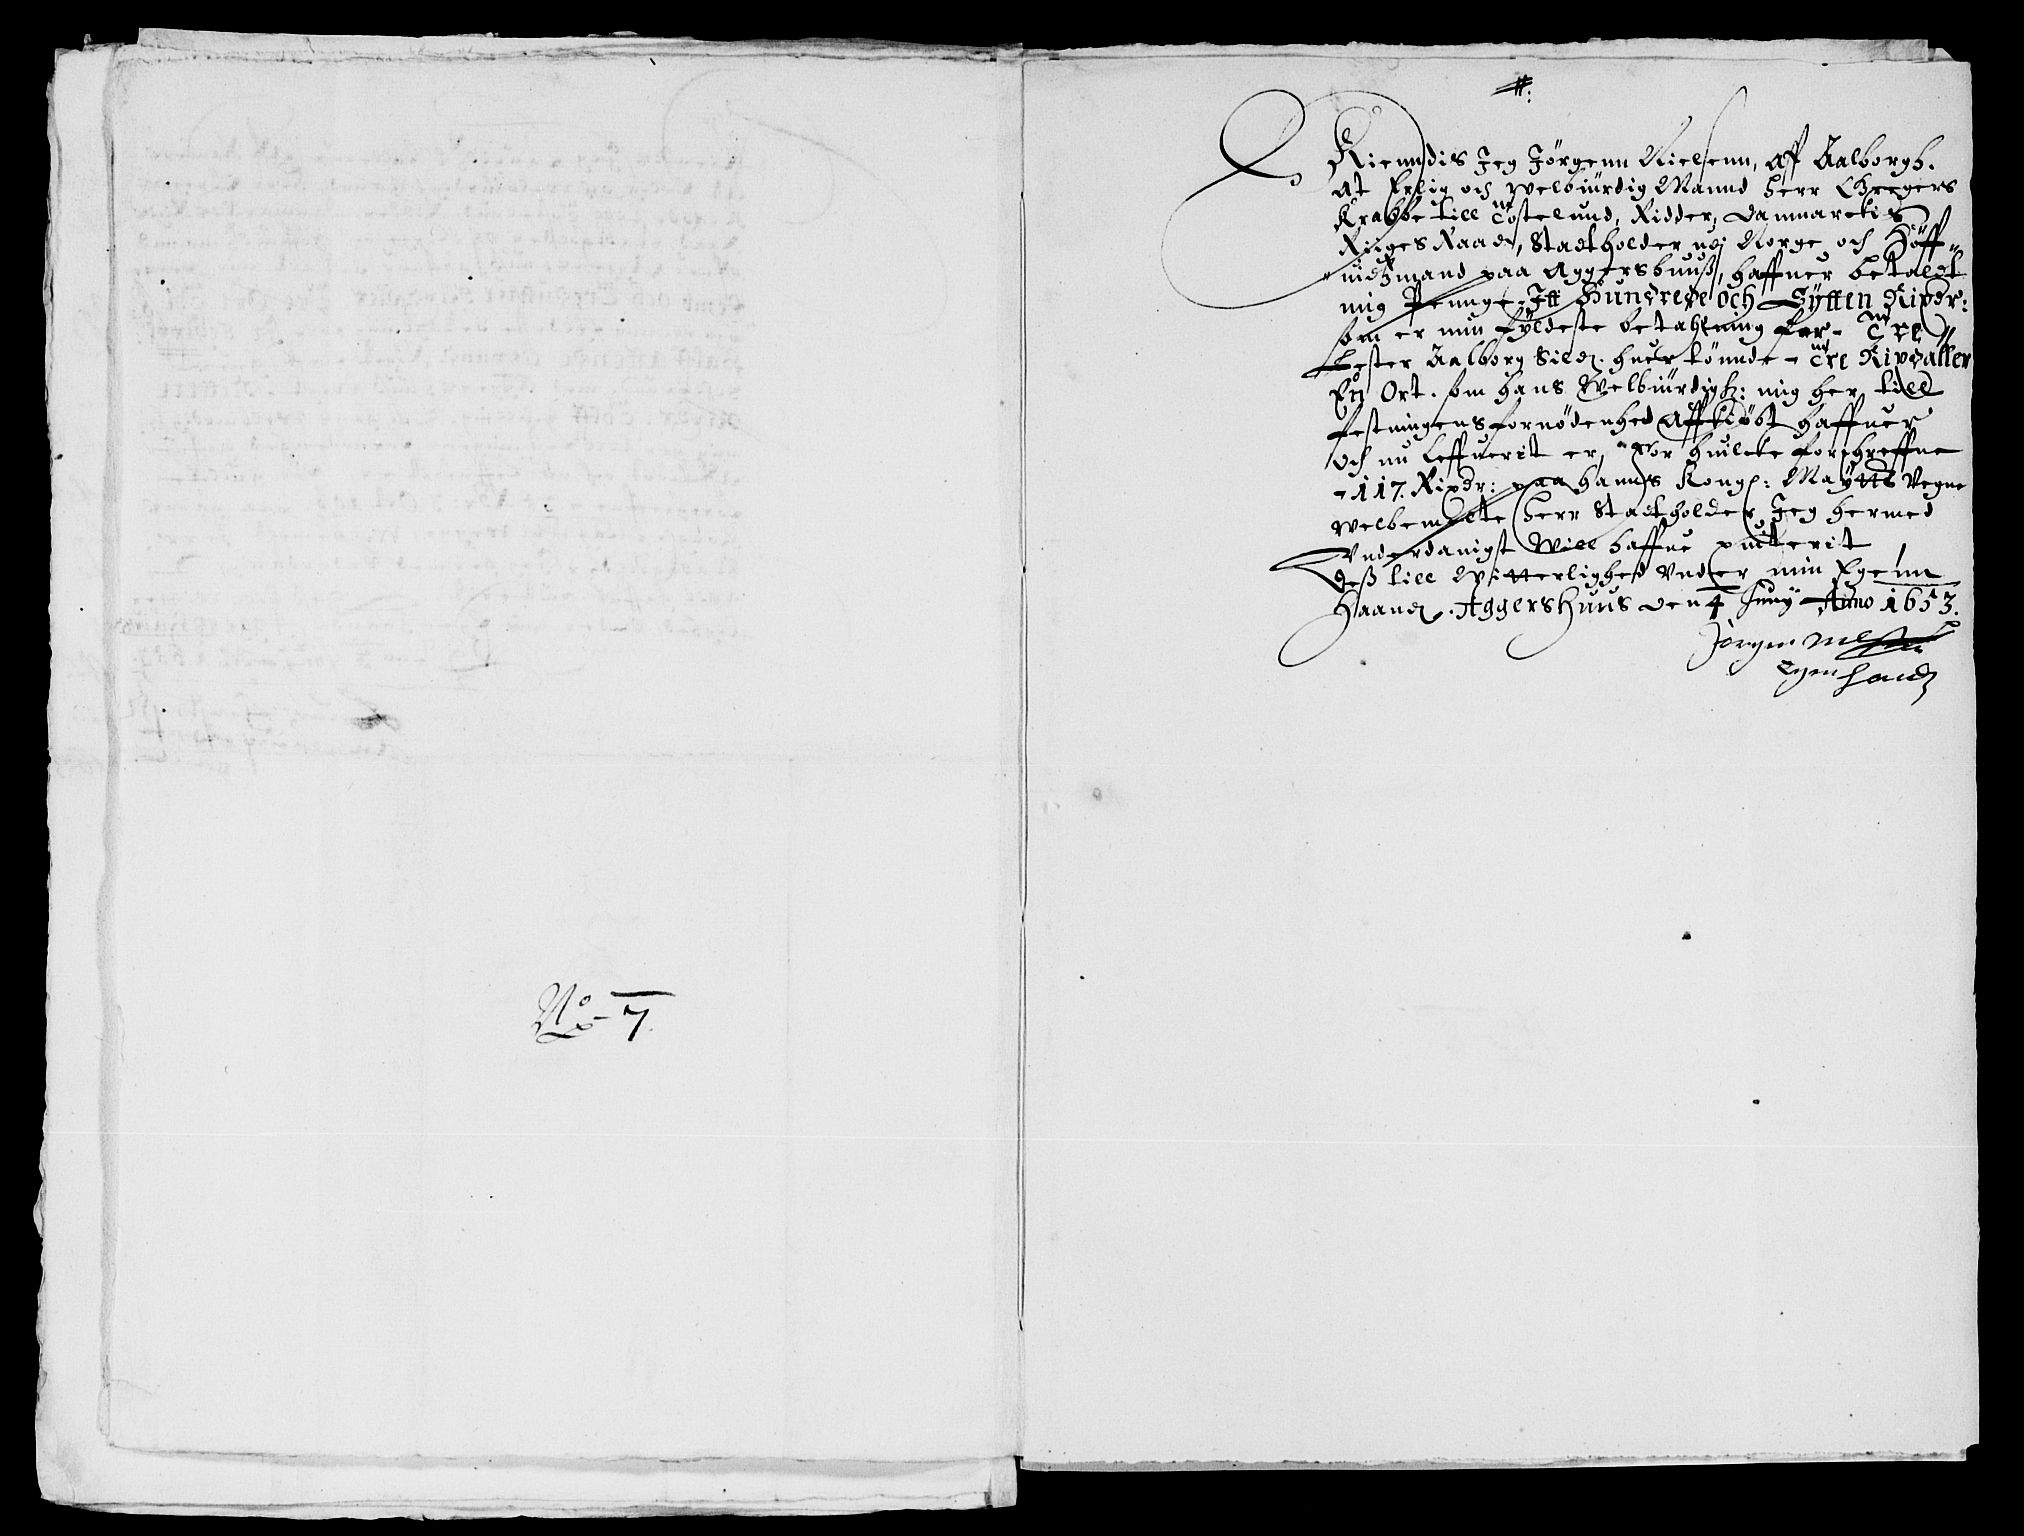 No 7.
Kienndis Jeg Jörgenn Nielsenn, aff Aalborgh.
At Erlig och Welbiurdig Mannd Herr Gregers
Krabbe till Tostelund, Ridder, Danmarckis
Riiges Raad, Stadtholder udj Norge och Höff-
uidtzmand paa Aggershuuß, Haffuer betaldt
mig Penge Itt Hundrede Och Sytten Rixdr:
som er min fyldeste betahlning for Tre
Lester Aalborg Sild, huer tönnde Tre Rixdaller
En Ort. som hans Welbiurdigh: mig her till
festningens fornödenhed Affkiöbt haffuer
och nu leffuerit er, For huilcke forschreffne
117. Rixdr: paa hanns Kongl: Maytts Vegne
welbemelte Herr Stadtholder Jeg hermed
Vnderdanigst Will haffue quiterit
Deß till Witterlighed Vnder min Egenn
Haand. Aggershuus den 4 Juny Anno 1653.
Jörgen Nielsen
Egen Hand